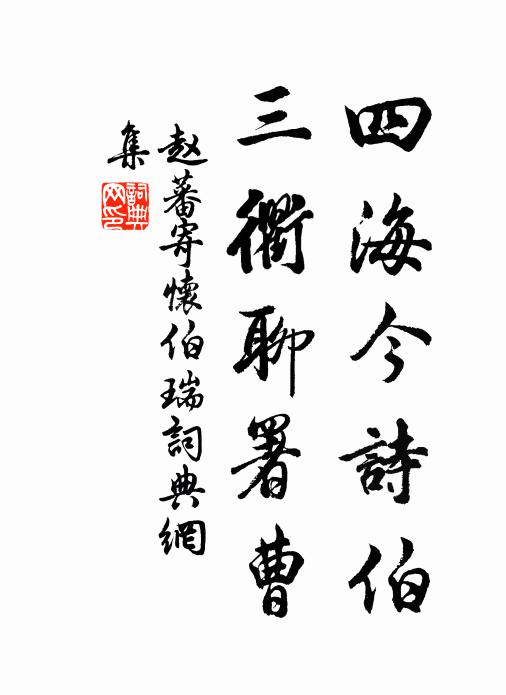 四海今詩伯
三衢聊署曹
赵蕃寄懷伯瑞詞典網
集
詞典网印